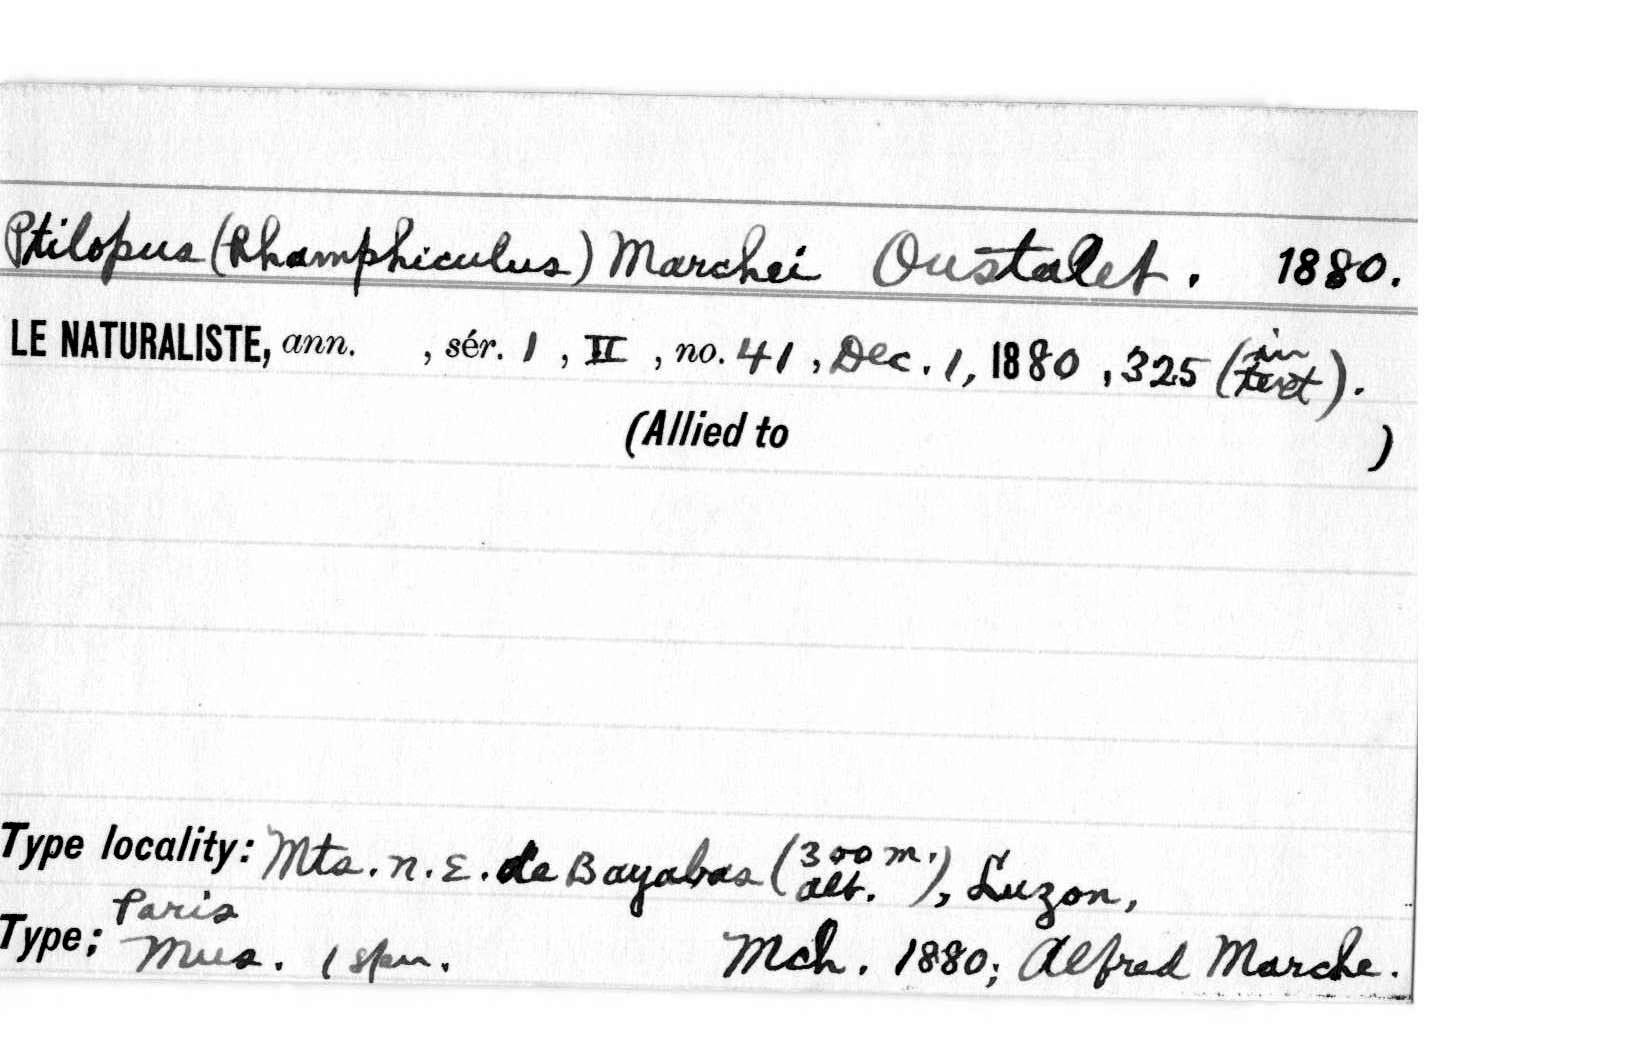 Ptilopus (Rhamphiculus) Marchei Oustalet. 1880.
LE NATURALISTE, ann. , sér. 1 , II , no. 41 , Dec. 1, 1880 , 325 (in text).
(Allied to )
Type locality: Mts. n. E. de Bayabas (300 m. alt.), Luzon,
Type; Paris Mus. 1 spm. Mch. 1880; Alfred Marche.